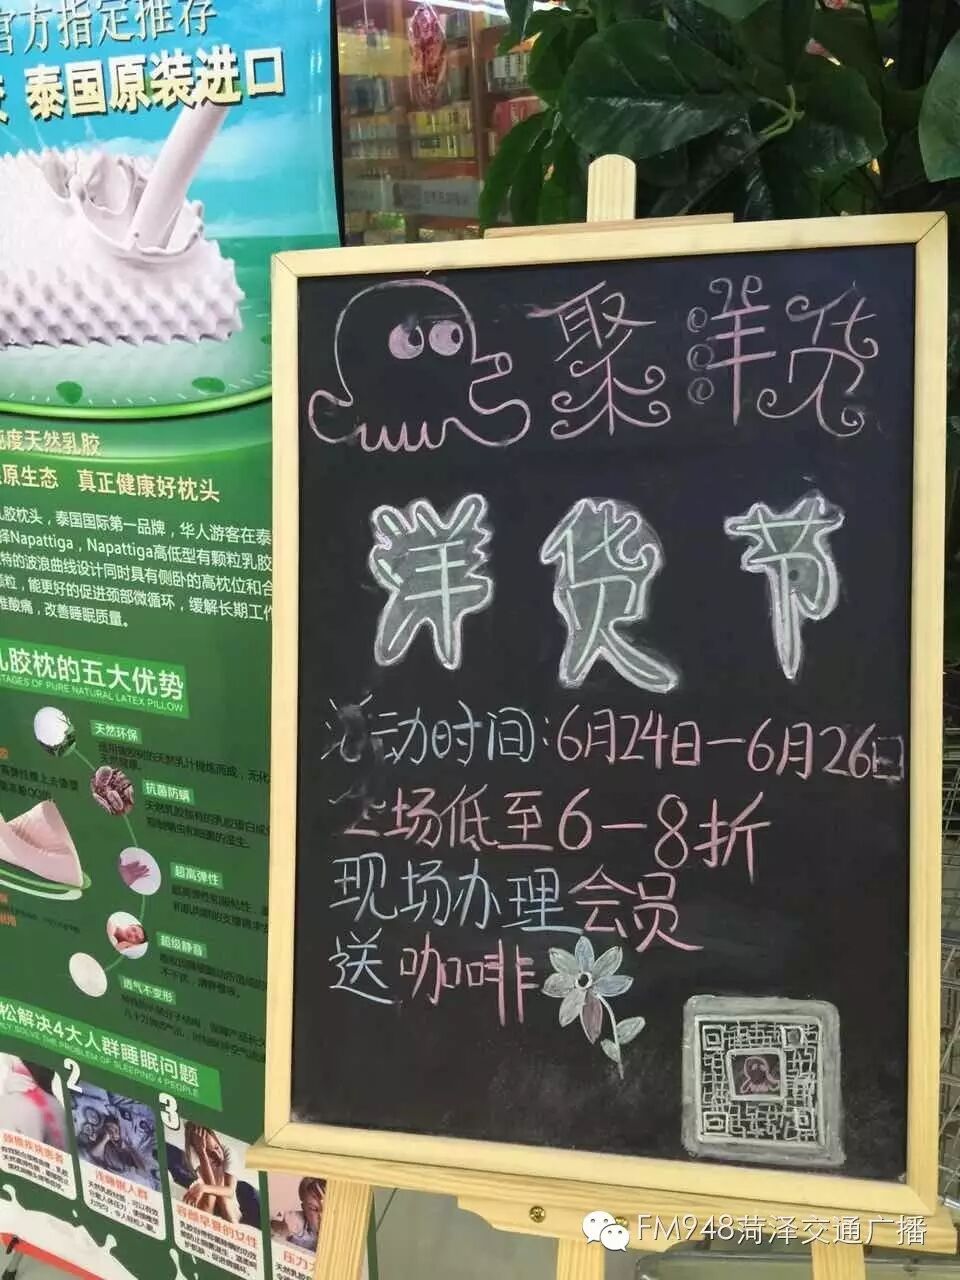 官方指定推荐
泰国原装进口
度天然乳胶
原生态 真正健康好枕头
乳胶枕头，泰国国际第一品牌，华人游客在泰
择Napattiga，Napattiga高低型有颗粒乳胶
特的波浪曲线设计同时具有侧卧的高枕位和合
颗粒，能更好的促进颈部微循环，缓解长期工作
椎酸痛，改善睡眠质量。
乳胶枕的五大优势
STAGES OF PURE NATURAL LATEX PILLOW
天然环保
抗菌防螨
超高弹性
超级静音
透气不变形
松解决4大人群睡眠问题
SOLVE THE PROBLEM OF SLEEPING 4 PEOPLE
2
3
颈椎疾病患者
浅睡眠人群
容颜早衰的女性
压力
聚洋货
洋货节
活动时间:6月24日—6月26日
全场低至6—8折
现场办理会员
送咖啡
FM948菏泽交通广播